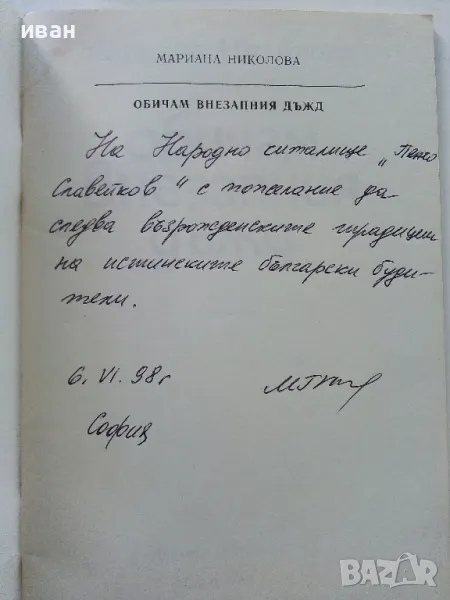 иван
МАРИАНА НИКОЛОВА
ОБИЧАМ ВНЕЗАПНИЯ ДЪЖД
На Народно читалище „Пенчо
Славейков“ с пожелание да
следва възрожденските традиции
на истинските български буди-
тели.
6. VI. 98 г
София
BAZAR.BG